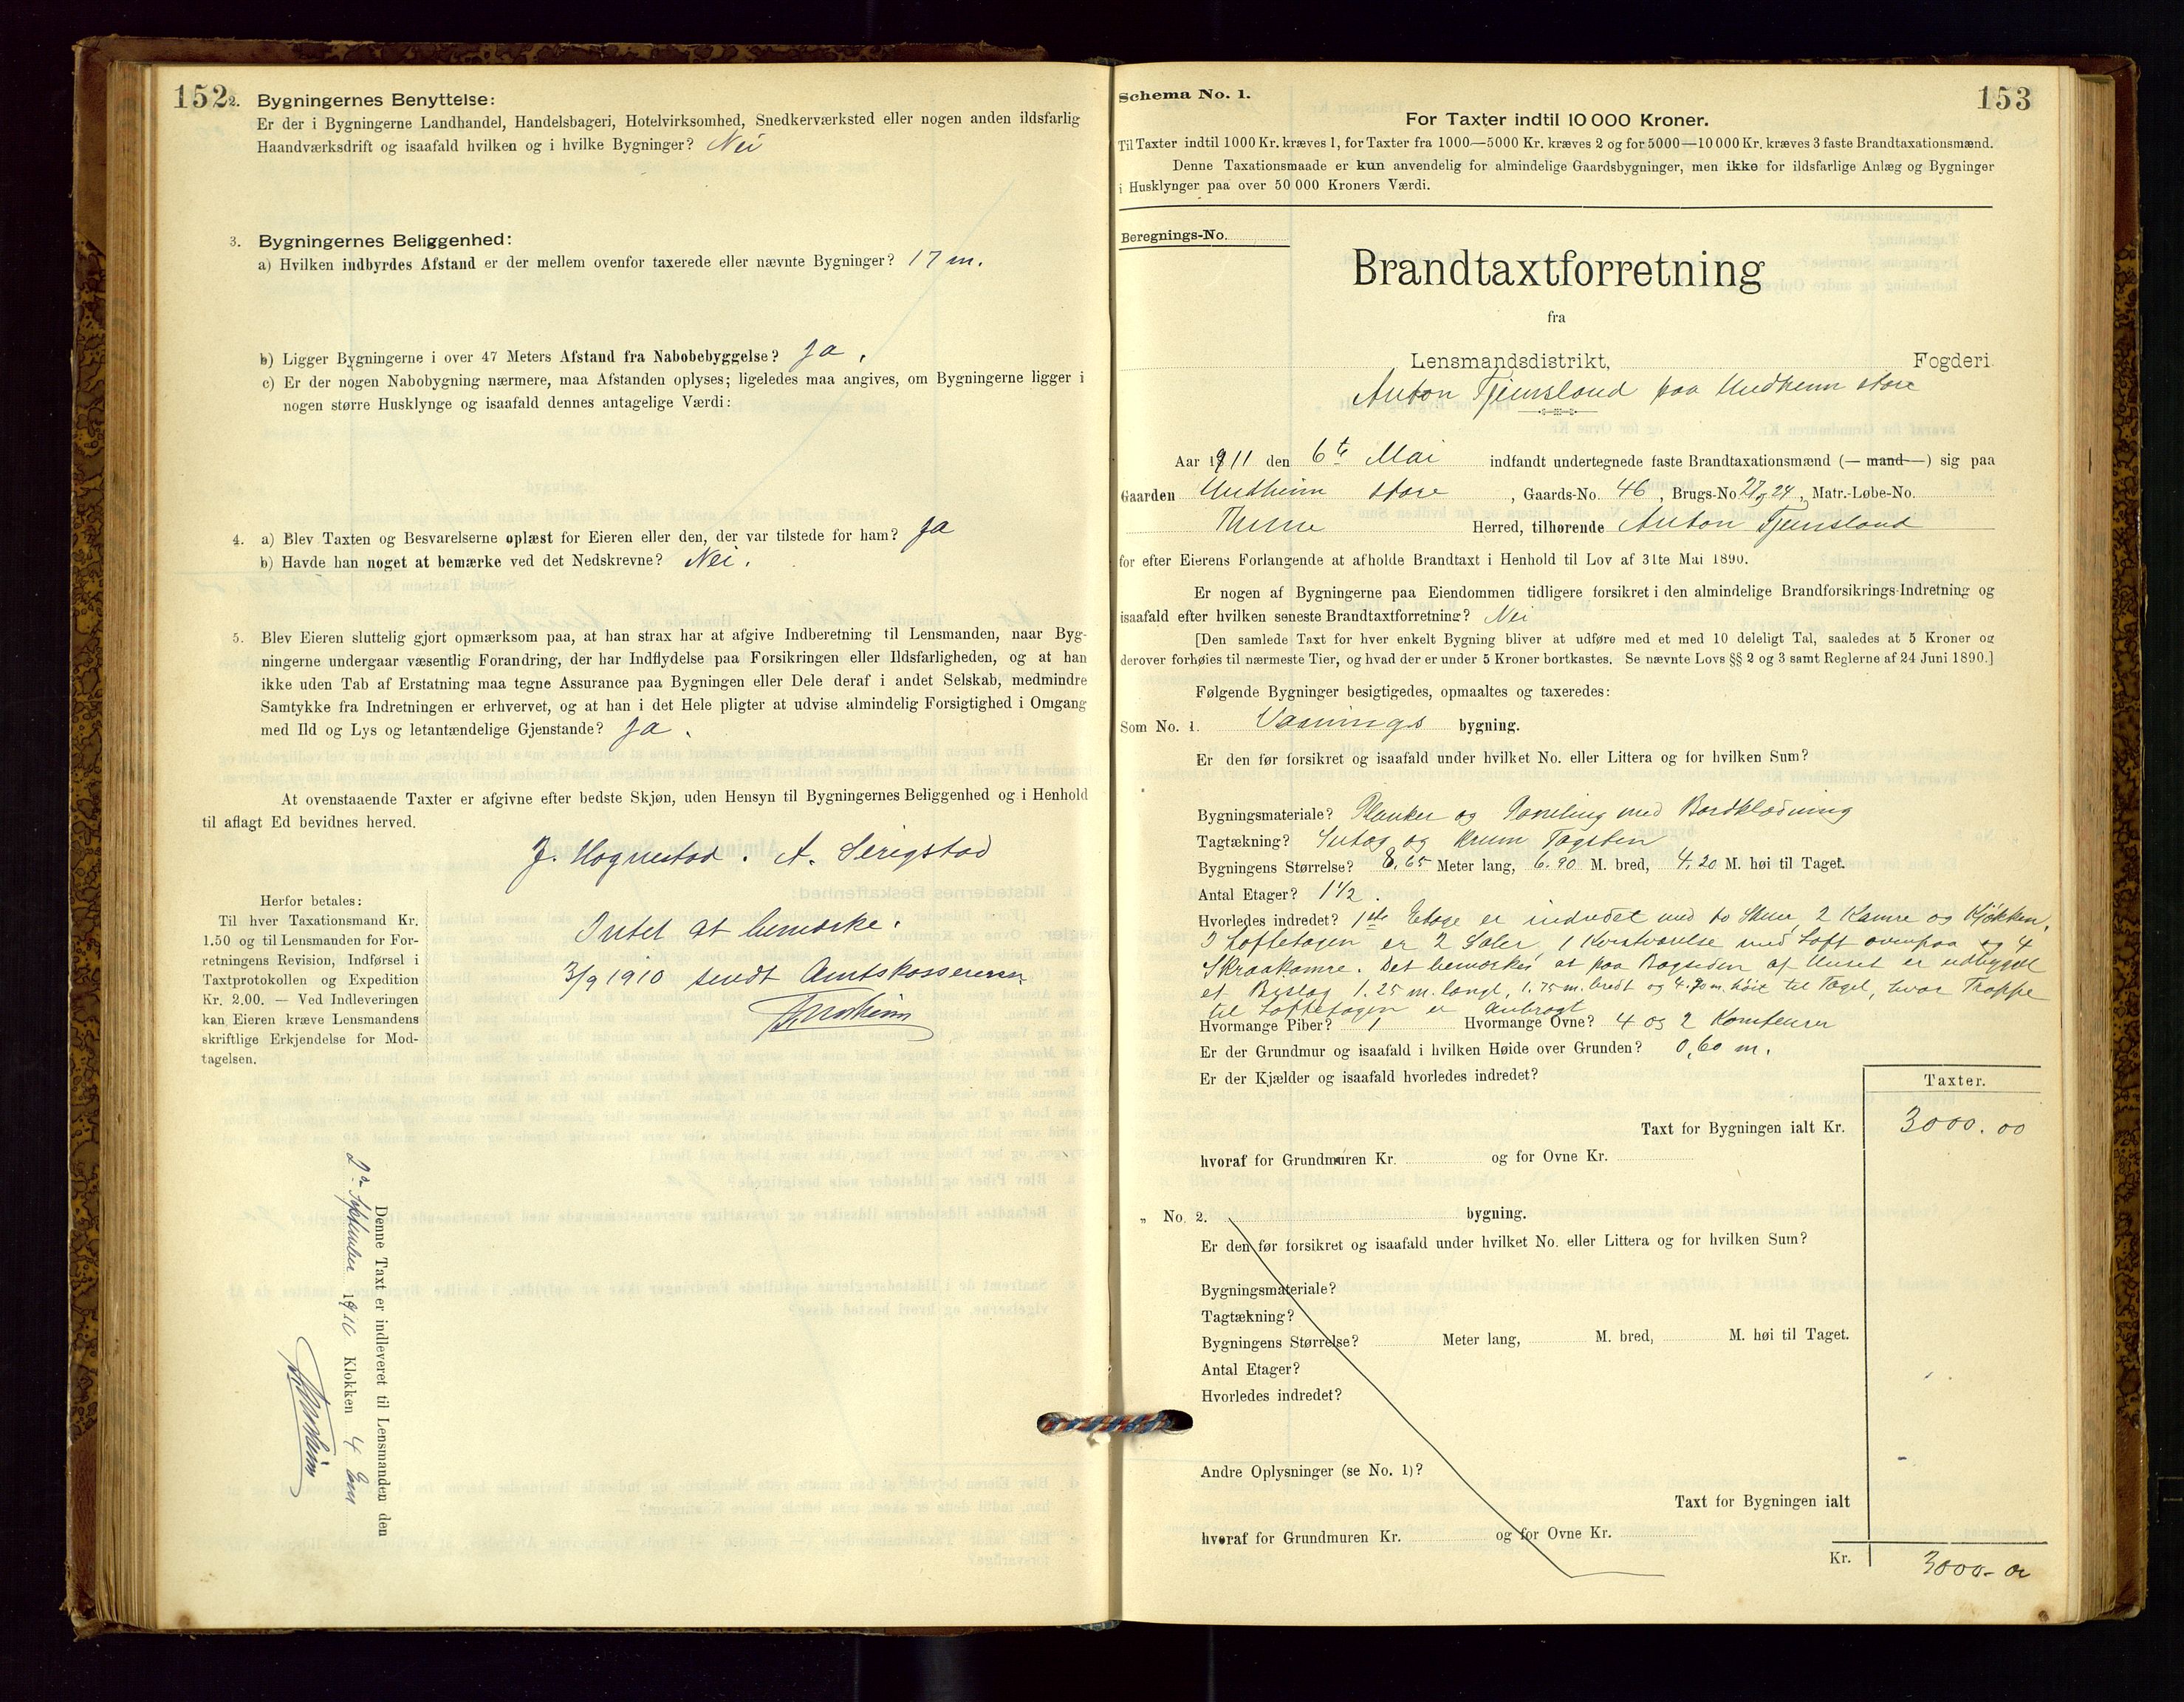 152
2. Bygningernes Benyttelse:
Er der i Bygningerne Landhandel, Handelsbageri, Hotelvirksomhed, Snedkerværksted eller nogen anden ildsfarlig
Haandværksdrift og isaafald hvilken og i hvilke Bygninger? Nei
3. Bygningernes Beliggenhed:
a) Hvilken indbyrdes Afstand er der mellem ovenfor taxerede eller nævnte Bygninger? 17 m.
b) Ligger Bygningerne i over 47 Meters Afstand fra Nabobebyggelse? Ja.
c) Er der nogen Nabobygning nærmere, maa Afstanden oplyses; ligeledes maa angives, om Bygningerne ligger i
nogen større Husklynge og isaafald dennes antagelige Værdi:
4. a) Blev Taxten og Besvarelserne oplæst for Eieren eller den, der var tilstede for ham? Ja
b) Havde han noget at bemærke ved det Nedskrevne? Nei.
5. Blev Eieren sluttelig gjort opmærksom paa, at han strax har at afgive Indberetning til Lensmanden, naar Byg-
ningerne undergaar væsentlig Forandring, der har Indflydelse paa Forsikringen eller Ildsfarligheden, og at han
ikke uden Tab af Erstatning maa tegne Assurance paa Bygningen eller Dele deraf i andet Selskab, medmindre
Samtykke fra Indretningen er erhvervet, og at han i det Hele pligter at udvise almindelig Forsigtighed i Omgang
med Ild og Lys og letantændelige Gjenstande? Ja.
At ovenstaaende Taxter er afgivne efter bedste Skjøn, uden Hensyn til Bygningernes Beliggenhed og i Henhold
til aflagt Ed bevidnes herved.
J. Hognestad. A. Serigstad
Intet at bemærke.
3/9 1910 sendt Amtskassereren
Herfor betales:
Til hver Taxationsmand Kr.
1.50 og til Lensmanden for For-
retningens Revision, Indførsel i
Taxtprotokollen og Expedition
Kr. 2.00. — Ved Indleveringen
kan Eieren kræve Lensmandens
skriftlige Erkjendelse for Mod-
tagelsen.
Denne Taxt er indleveret til Lensmanden den
2de September 1910 Klokken 4 Em
153
Schema No. 1.
For Taxter indtil 10 000 Kroner.
Til Taxter indtil 1000 Kr. kræves 1, for Taxter fra 1000—5000 Kr. kræves 2 og for 5000—10 000 Kr. kræves 3 faste Brandtaxationsmænd.
Denne Taxationsmaade er kun anvendelig for almindelige Gaardsbygninger, men ikke for ildsfarlige Anlæg og Bygninger
i Husklynger paa over 50 000 Kroners Værdi.
Beregnings-No.
Brandtaxtforretning
fra
Lensmandsdistrikt, Fogderi
Anton Tjensland paa Undheim store
Aar 1911 den 6te Mai indfandt undertegnede faste Brandtaxationsmænd (— mand —) sig paa
Gaarden Undheim store, Gaards-No. 46, Brugs-No. 27 og 24, Matr.-Løbe-No.
Thime Herred, tilhørende Anton Tjensland
for efter Eierens Forlangende at afholde Brandtaxt i Henhold til Lov af 31te Mai 1890.
Er nogen af Bygningerne paa Eiendommen tidligere forsikret i den almindelige Brandforsikrings-Indretning og
isaafald efter hvilken seneste Brandtaxtforretning? Nei
[Den samlede Taxt for hver enkelt Bygning bliver at udføre med et med 10 deleligt Tal, saaledes at 5 Kroner og
derover forhøies til nærmeste Tier, og hvad der er under 5 Kroner bortkastes. Se nævnte Lovs §§ 2 og 3 samt Reglerne af 24 Juni 1890.]
Følgende Bygninger besigtigedes, opmaaltes og taxeredes:
Som No. 1. Vaanings bygning.
Er den før forsikret og isaafald under hvilket No. eller Littera og for hvilken Sum?
Bygningsmateriale? Planker og Paneling med Bordklædning
Tagtækning? Sutag og krum Tagsten
Bygningens Størrelse? 8.65 Meter lang, 6.90 M. bred, 4.20 M. høi til Taget.
Antal Etager? 1 1/2.
Hvorledes indredet? 1ste Etage er indredet med to Stuer, 2 Kamre og Kjøkken,
I Loftetagen er 2 Saler, 1 Kvistværelse med Loft ovenpaa og 4
Skraakamre. Det bemærkes at paa Bagsiden af Huset er udbygget
et Bislag 1.25 m. langt, 1.75 m. bredt og 4.20 m. høit til Taget, hvor Trappe
til Loftetagen er anbragt
Hvormange Piber? 1 Hvormange Ovne? 4 og 2 Komfeurer
Er der Grundmur og isaafald i hvilken Høide over Grunden? 0,60 m.
Er der Kjælder og isaafald hvorledes indredet?
Taxter.
Taxt for Bygningen ialt Kr. 3000.00
hvoraf for Grundmuren Kr. og for Ovne Kr.
„ No. 2. bygning.
Er den før forsikret og isaafald under hvilket No. eller Littera og for hvilken Sum?
Bygningsmateriale?
Tagtækning?
Bygningens Størrelse? Meter lang, M. bred, M. høi til Taget.
Antal Etager?
Hvorledes indredet?
Andre Oplysninger (se No. 1)?
Taxt for Bygningen ialt
hvoraf for Grundmuren Kr. og for Ovne Kr.
Kr. 3000-00